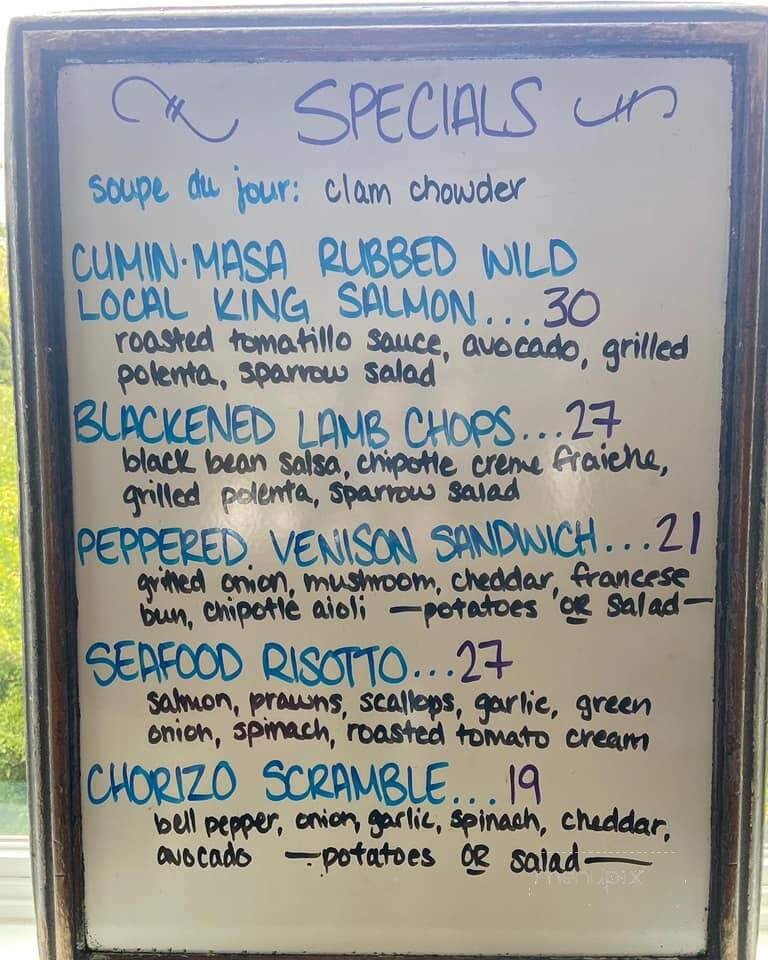 SPECIALS
soupe du jour: clam chowder
CUMIN·MASA RUBBED WILD
LOCAL KING SALMON...30
roasted tomatillo sauce, avocado, grilled
polenta, sparrow salad
BLACKENED LAMB CHOPS...27
black bean salsa, chipotle creme fraiche,
grilled polenta, sparrow salad
PEPPERED VENISON SANDWICH...21
grilled onion, mushroom, cheddar, francese
bun, chipotle aioli —potatoes OR salad—
SEAFOOD RISOTTO...27
salmon, prawns, scallops, garlic, green
onion, spinach, roasted tomato cream
CHORIZO SCRAMBLE...19
bell pepper, onion, garlic, spinach, cheddar,
avocado —potatoes OR salad—
menupix